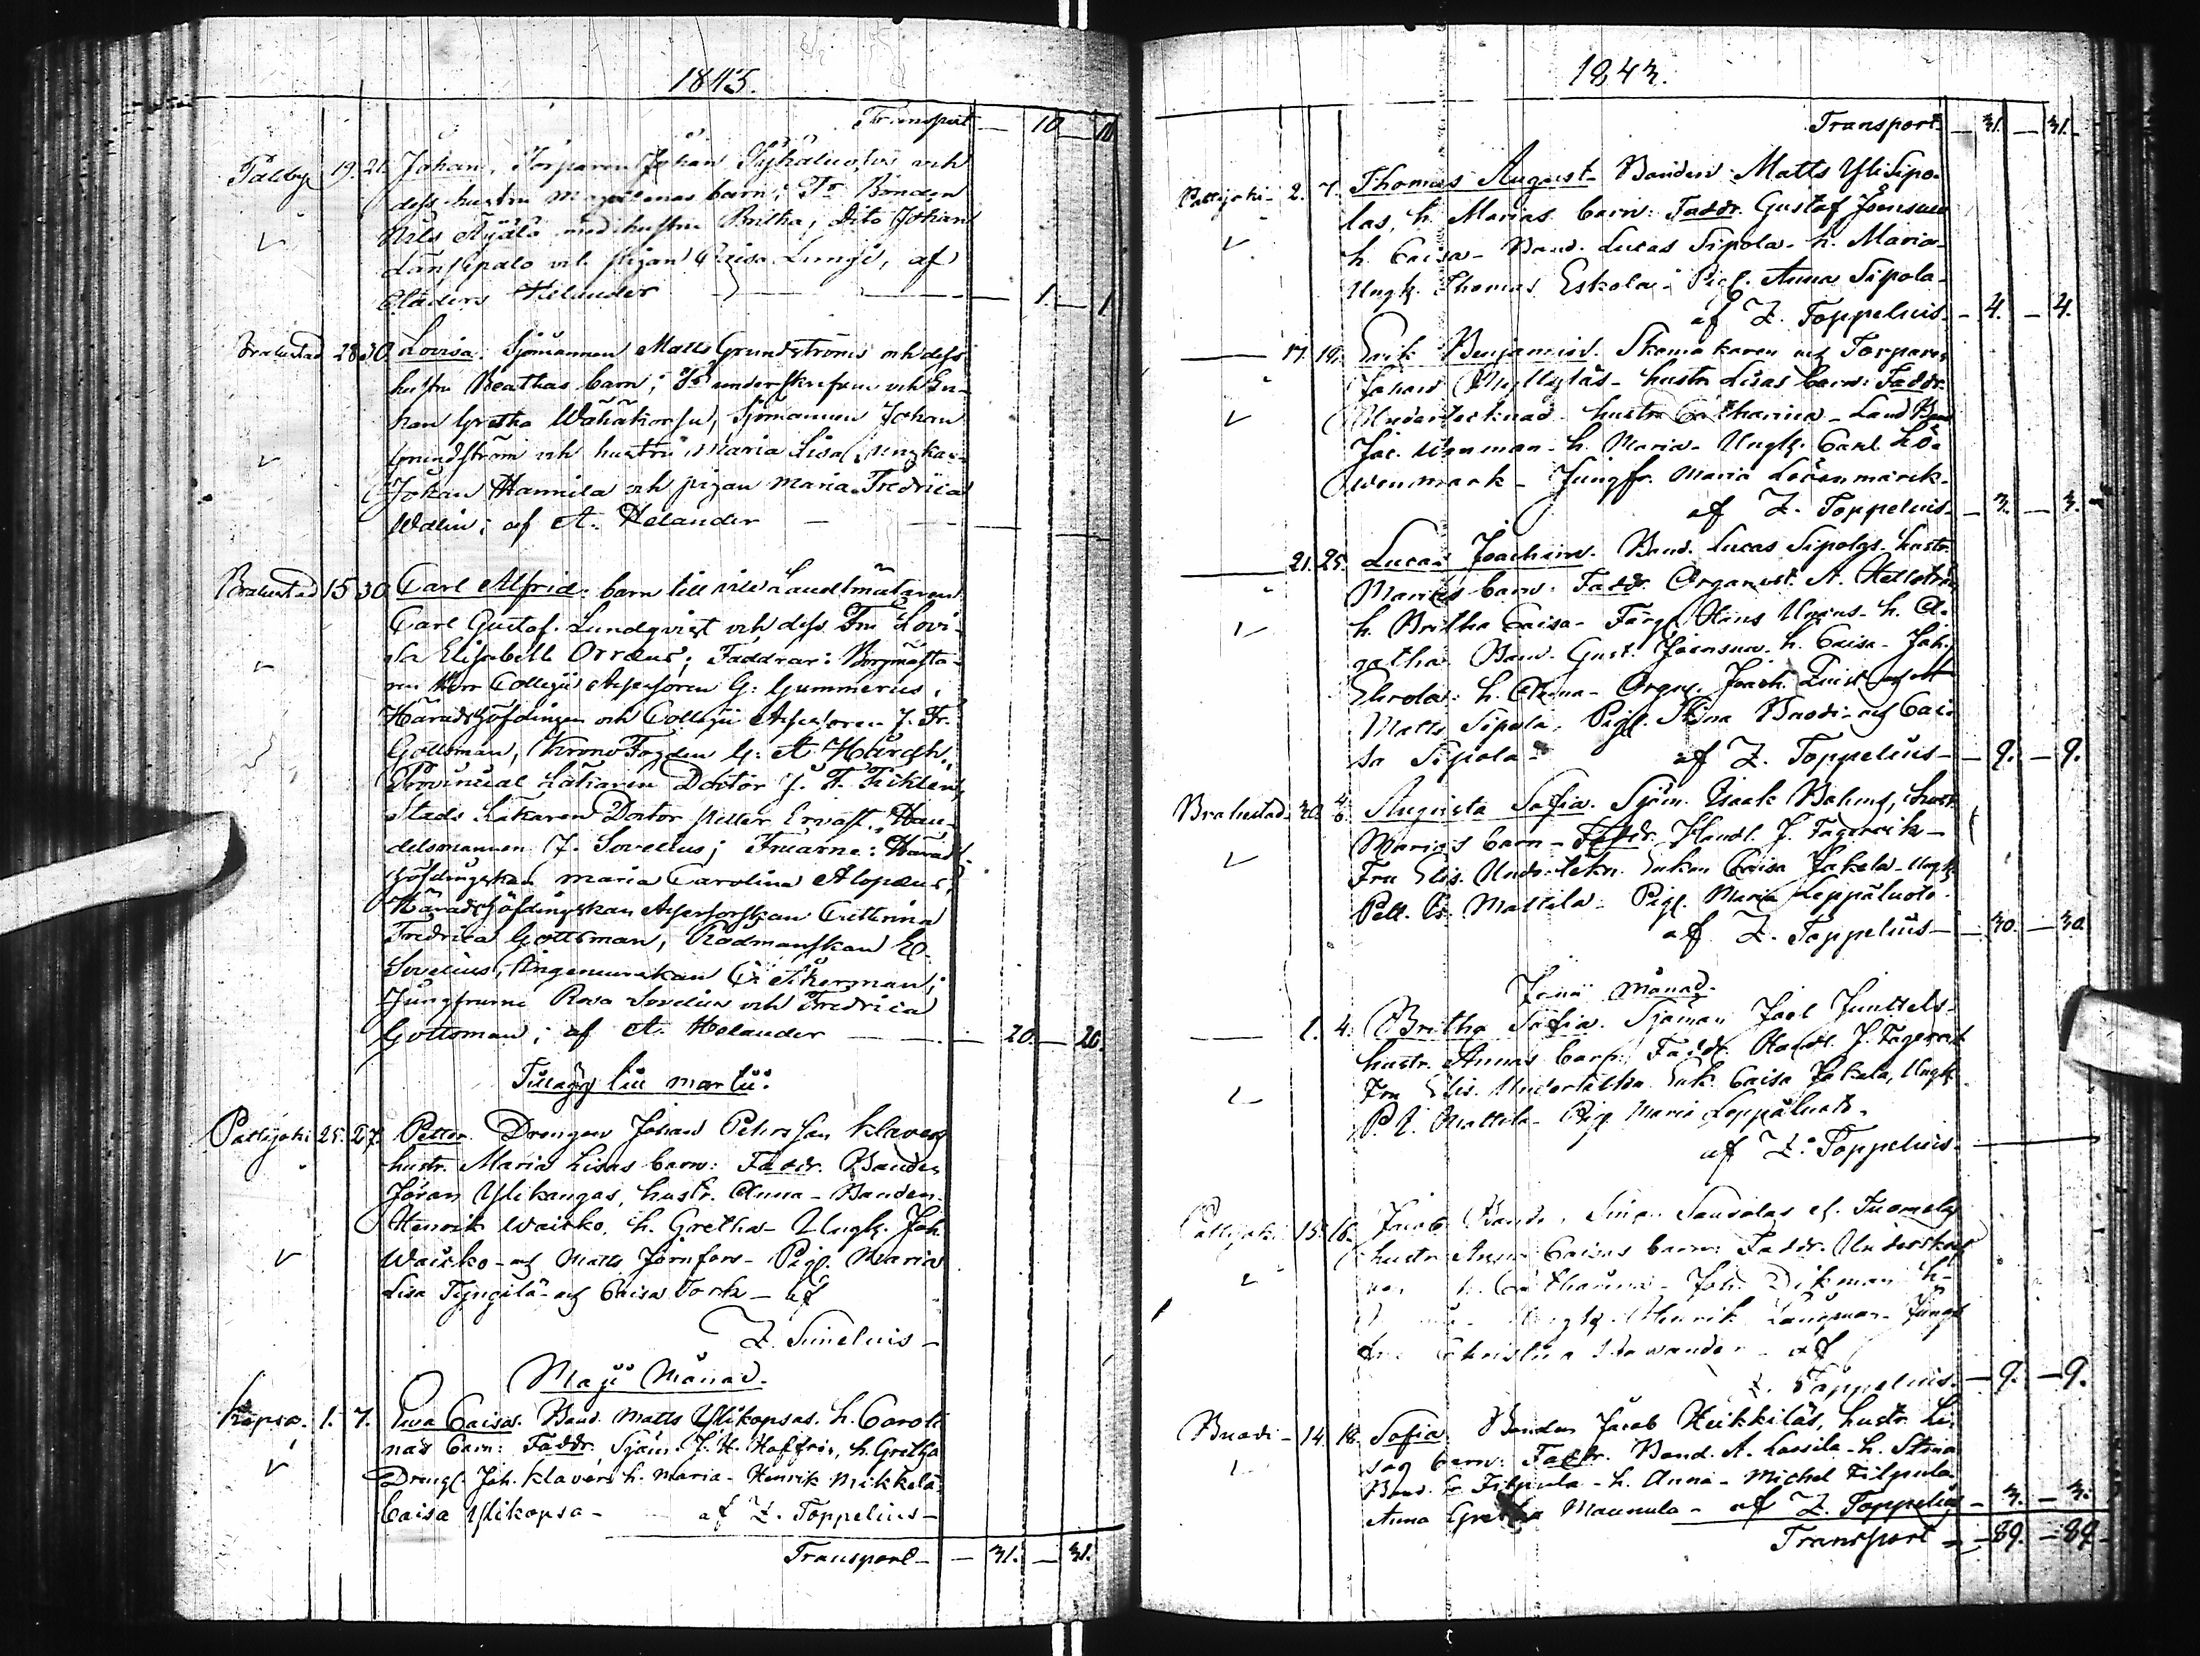 1843.
Transport — 10 — 10
Palby 19. 21. Johan, Torparen Johan Pyhäluotos och
dess hustru Magdalenas barn; Fr Bonden
Nils Äijälä med hustru Britha, Dito Johan
Länsipalo och pigan Caisa Lungi, af
A. Helander — 1. — 1
Brahestad 28. 30. Lovisa: Sjömannen Matts Grundströms och dess
hustru Beathas barn; Fr underskrifven och En-
kan Gretha Wähäkorpu, Sjömannen Johan
Grundström och hustru Maria Lisa, Ungkar.
Johan Hannila och pigan Maria Fredrica
Wdlin; af A. Helander —
Brahestad 15 30 Carl Alfrid: barn till Landtmätaren
Carl Gustaf Lundqvist och dess Fru Lovi-
sa Elisabeth Orræus; Faddrar: Borgmästa-
ren Herr Collegii Assessoren G: Gummerus,
Häradshöfdingen och Collegii Assessoren J. Fr.
Gottsman, KronoFogden G: A Hårdh,
Provincial Läkaren Doctor J. F. Ticklén,
Stads Läkaren Doctor Petter Ervast, Han-
delsmannen J. Sovelius; Fruarne: Härads-
höfdingskan Maria Carolina Alopæus,
Häradshöfdingskan Assessorskan Cathrina
Fredrica Gottsman, Rådmanskan
Sovelius, Ingeniurskan C: Åkerman;
Jungfrurne Rosa Sovelius och Fredrica
Gottsman; af A. Helander — 20. — 20.
Tillägg till martii.
Pattijoki 25. 27. Petter. Drengen Johan Petersson Klavers
hustr. Maria Lisas barn: Faddr. Bonden
Jöran Ylikangas, hustr. Anna - Bonden
Henrik Waisko, h. Gretha - Ungk. Joh.
Waisko - och Matts Jörnfors - Pig. Maria
Lisa Tyngilä - och Caisa Tork - af
Z. Simelius -
Maji Månad.
Kopsa. 1. 7. Eva Caisa. Bond. Matts Ylikopsas, h. Caroli
nas barn: Faddr. Sjöm. J. H. Hoffrén, h. Gretha
Dreng. Joh. Klavers h. Maria - Henrik Mikkola
Caisa Ylikopsa - af Z. Toppelius -
Transport - — 31. — 31.
1843.
Transport — 31. — 31.
Pattijoki - 2. 7. Thomas August - Bonden Matts YliSipo-
las, h. Marias barn: Faddr. Gustaf Joensuu
h. Caisa - Bond. Lucas Sipola - h. Maria -
Ungk. Thomas Eskola - Pig. Anna Sipola -
af Z. Toppelius - 4. — 4.
— 17. 19. Erik Benjamin. Skomakaren och Torparen
Johan Myllyläs - hustr. Lisas barn: Faddr.
Undertecknad hustru Catharina - Land Bond
Jac. Wenman - h. Maria - Ungk. Carl Lö-
wenmark - Jungfr. Maria Lövenmark -
af Z. Toppelius - 3. — 3.
— 21. 25. Lucas Joachim. Bond. Lucas Sipolas hustr.
Marias barn: Faddr. Organist. A. Hellström
h. Britha Caisa - Färg. Hans - h. A-
gatha Bond. Gust. Joensuu h. Caisa - Joh.
h. Anna - Joach. och
Matts Sipola, Pig. Stina Buodi - och Cai-
sa Sipola - af Z. Toppelius - — 9. — 9.
Brahestad - 30. 4/6. Augusta Sofia. Sjöm. Isaak Bohms, hustr.
Marias barn - Faddr. Handl. J. Fagerrik -
Fru Elis. Undertekn. Enkan Caisa Jakola - Ungk.
Pett. Mattila - Pig. Maria Leppäluoto.
af Z. Toppelius - 30. — 30.
Junii månad.
— 1. 4. Britha Sofia. Sjöman Joel Junttels -
hustr. Annas barn: Faddr. Handl. J. Fagerrik
Fru Elis. Undertekn. Enk. Caisa Jakola, Ungk.
P. Mattila - Pig. Maria Leppäluoto.
af Z. Toppelius -
Pattijoki 15. 16. Jacob Bonden Simon Sausolas el. Tuomelas
hustr. Anna Caisas barn: Faddr. Underskrif
ven h. Catharina - Joh. Dikman h.
Ungk. Henrik - Jungf
Christina - af
Z. Toppelius - — 9. — 9.
Buodi - 14 18 Sofia. Bonden Jacob Heikkiläs, hustr. Li-
sas barn: Faddr. Bond. A. Lassila - h. Stina
Bond. Filpula - h. Anna - Michel Filpula
Anna Gretha Maunula - af Z. Toppelius - 3. — 3.
Transport - — 89. — 89.